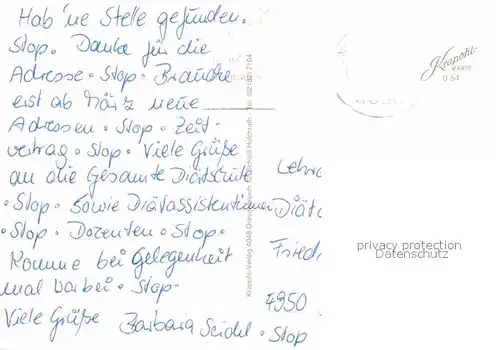 Hab 'ne Stelle gefunden.
Stop. Danke für die
Adresse. Stop. Brauche
erst ab März neue
Adressen. Stop. Zeit-
vertrag. Stop. Viele Grüße
an die Gesamte Diätschule
. Stop. Sowie Diätassistentinnen
. Stop. Dozenten. Stop.
Komme bei Gelegenheit
mal vorbei. Stop.
Viele Grüße Barbara Seidel. Stop
Krapohl-Verlag 4048 Grevenbroich
Krapohl
KARTE
Diät
Fried
4950
privacy protection
Datenschutz